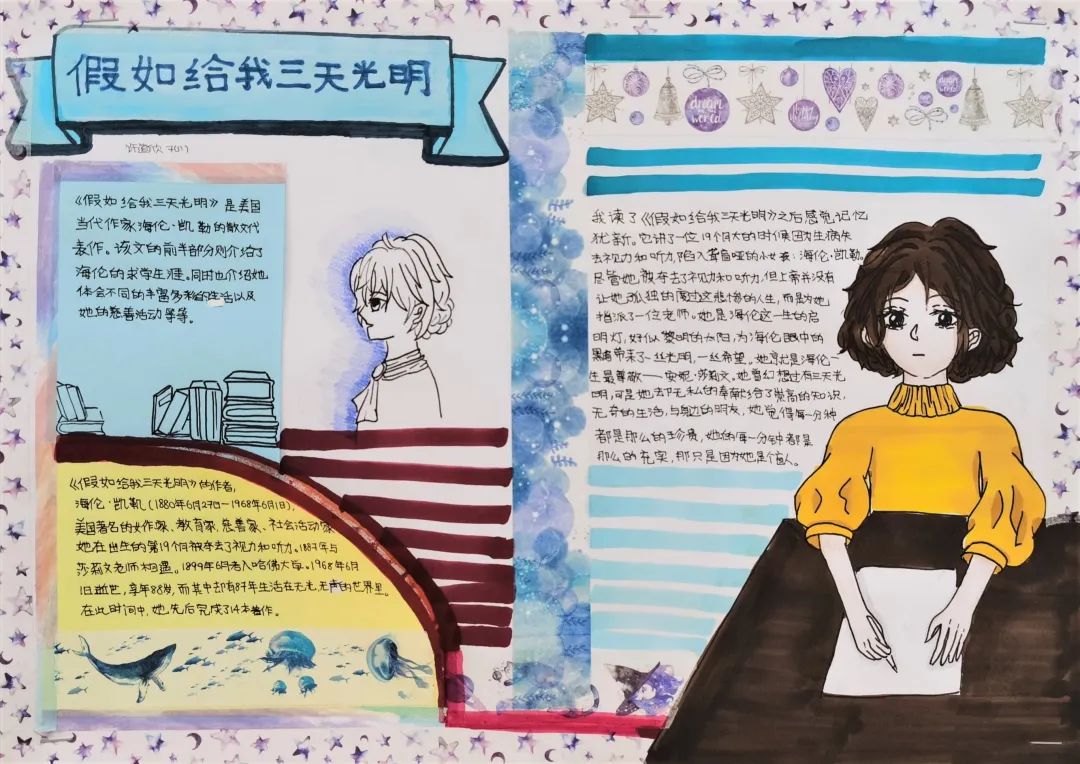 假如给我三天光明
7(1)
《假如给我三天光明》是美国
当代作家海伦·凯勒的散文代
表作。该文的前半部分则介绍了
海伦的求学生涯。同时也介绍她
体会不同的丰富多彩的生活以及
她的慈善活动等等。
《假如给我三天光明》的作者,
海伦·凯勒(1880年6月27日~1968年6月1日),
美国著名的女作家、教育家、慈善家、社会活动家
她在出生的第19个月被夺去了视力和听力。1887年与
莎莉文老师相遇。1899年6月考入哈佛大学。1968年6月
1日逝世,享年88岁,而其中却有87年生活在无光,无声的世界里。
在此时间中,她先后完成了14本著作。
dream world
happy
dream world
我读了《假如给我三天光明》之后感觉记忆
犹新。它讲了一位19个月大的时候因为生病失
去视力和听力,陷入聋盲哑的小女孩:海伦·凯勒。
尽管她被夺去了视力和听力,但上帝并没有
让她孤独的度过这悲惨的人生,而是为她
指派了一位老师。她是海伦这一生的启
明灯,好似黎明的太阳,为海伦眼中的
黑暗带来了一丝光明,一丝希望。她就是海伦一
生最尊敬——安妮·莎莉文。她曾幻想过有三天光
明,可是她却无私的奉献给了崇高的知识,
无奇的生活,与身边的朋友,她觉得每一分钟
都是那么的珍贵,她的每一分钟都是
那么的充实,那只是因为她是个盲人。